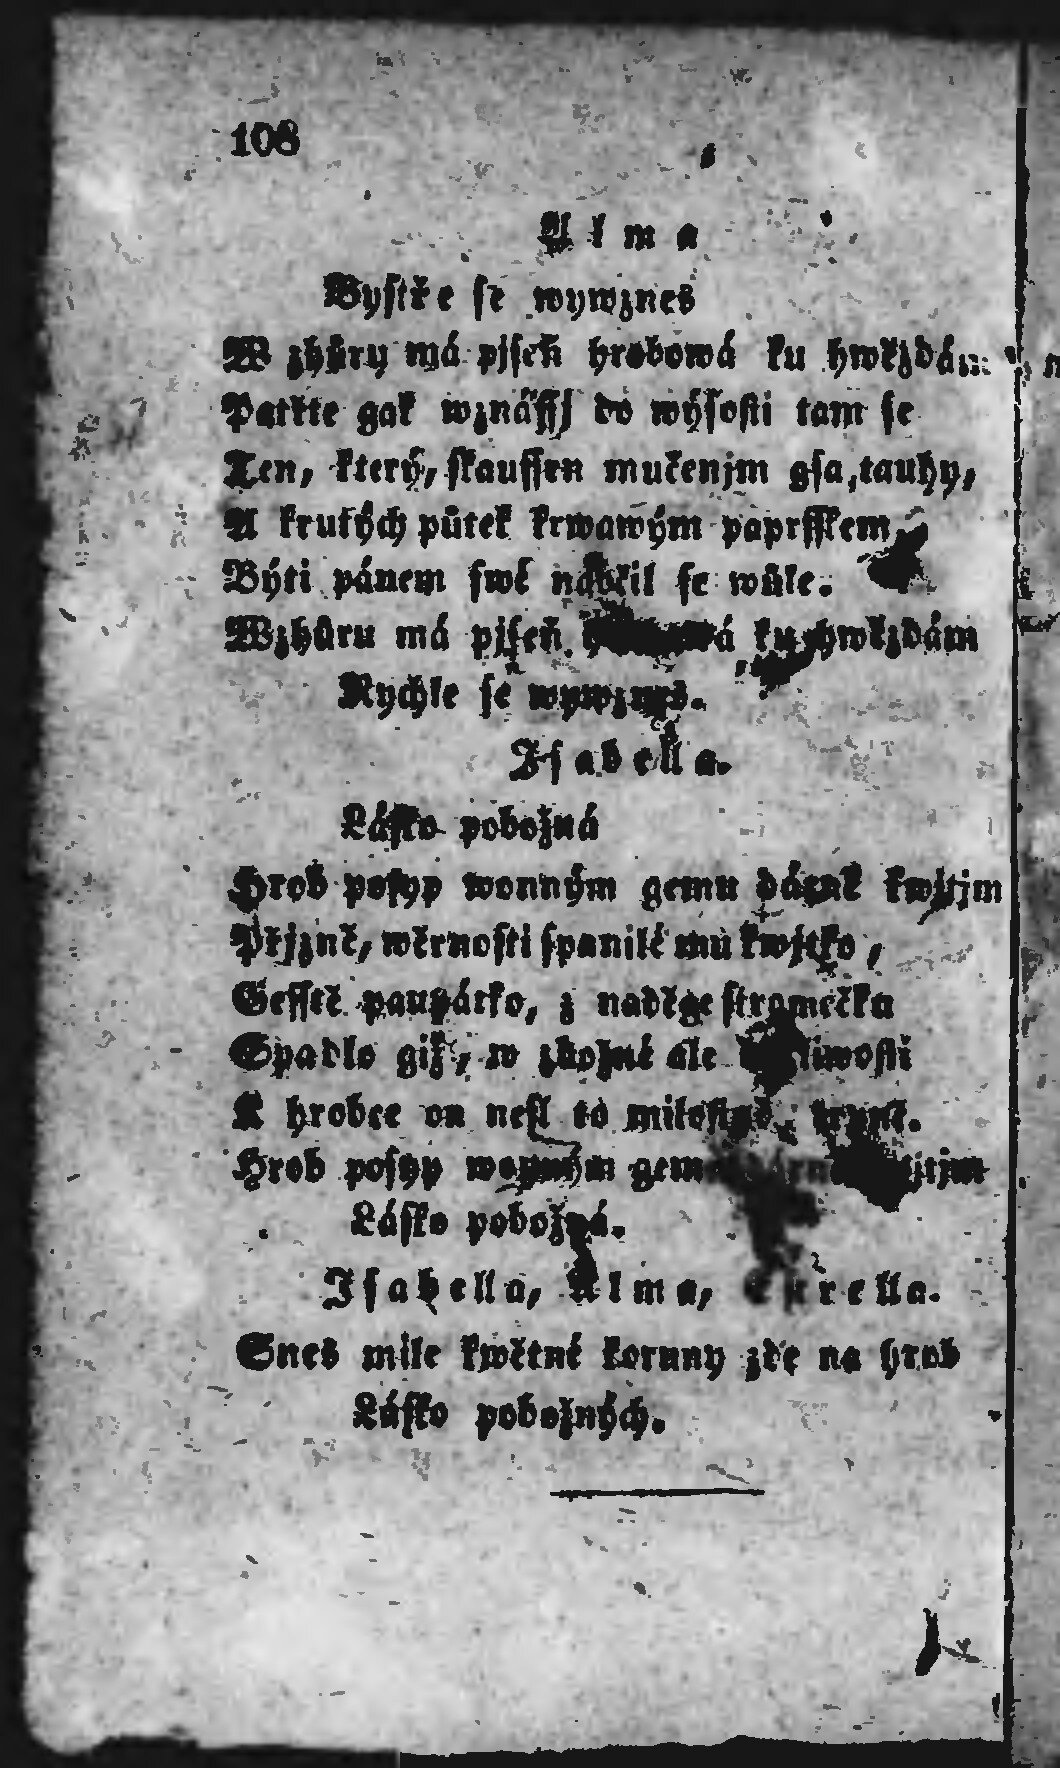 108
Alma
Bystře se wywzneš
W zhůru má pjseň hrobowá ku hwězdám
Patřte gak wznášsj do wýsosti tam se
Ten, který, skaussen mučenjm gsa, tauhy,
A krutých půtek krwawým paprsskem
Býti pánem swé se wůle.
Wzhůru má pjseň ku hwězdám
Rychle se wywzneš.
Isabella.
Lásko pobožná
Hrob posyp wonným gemu dárně kwjtjm
Přjzně, wěrnosti spanilé mu kwjtko,
Gesstě paupátko, z naděge stromečku
Spadlo giž, w zbožné ale
K hrobce on nesl to milostně trpně.
Hrob posyp wonným
Lásko pobožná.
Isabella, Alma,
Sneš mile kwětné koruny zde na hrob
Lásko pobožných.